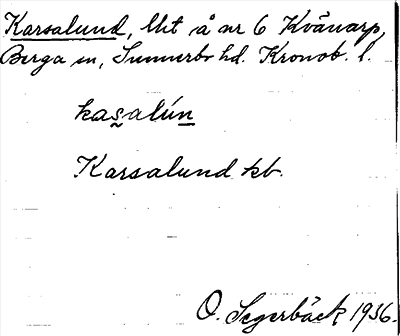 Karsalund, lht å nr 6 Kvänarp,
Berga sn, Sunnerbo hd. Kronob. l.
kas̰alún
Karsalund kb.
O. Segerbäck 1936.